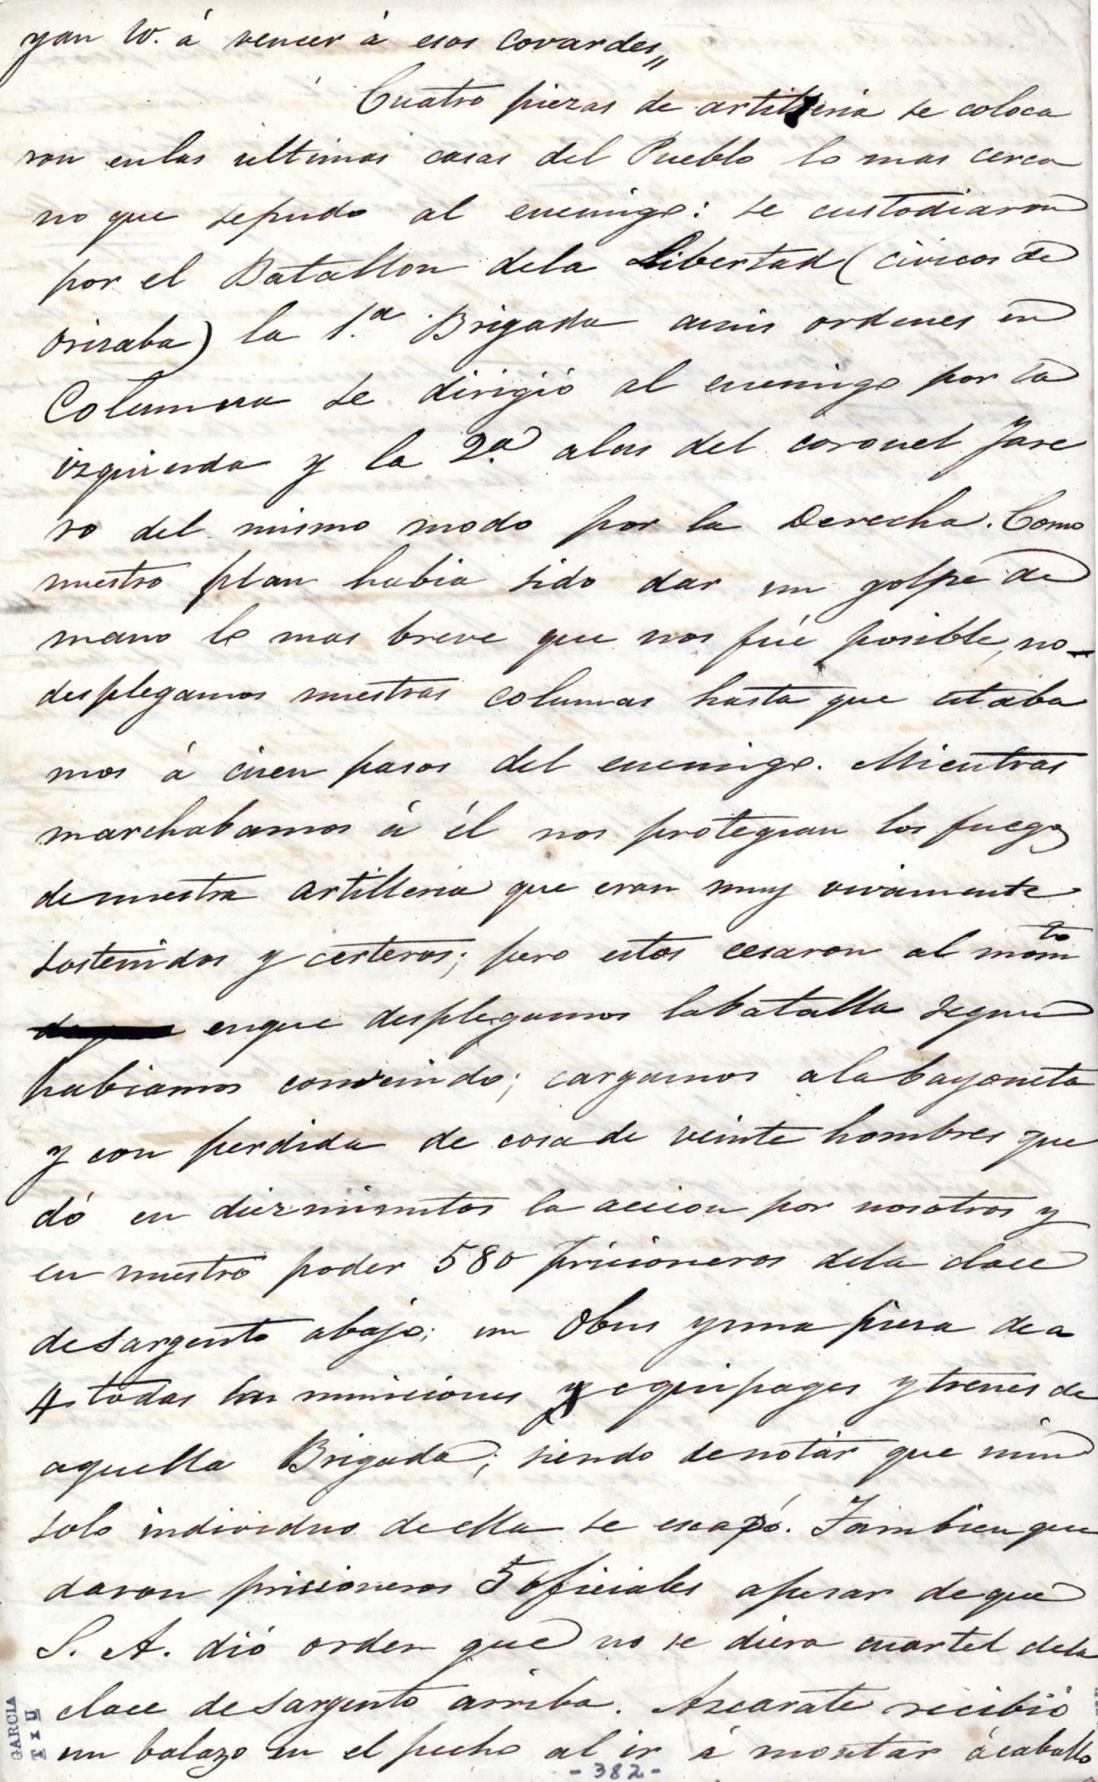 yan W. á vencer á esos Covardes,,
Cuatro piezas de artilleria se coloca
ron enlas ultimas casas del Pueblo lo mas cerca
no que sepudo al enemigo: se custodiaron
por el Batallon dela Libertad (civicos de
Orisaba) la 1.ª Brigada amis ordenes en
Columna se dirigió al enemigo por la
izquierda y la 2.ª alas del coronel Jare
ro del mismo modo por la Derecha. Como
nuestro plan habia sido dar un golpe de
mano lo mas breve que nos fué posible, no
desplegamos nuestras columas hasta que estaba
mos á cien pasos del enemigo. Mientras
marchabamos á él nos protegian los fuegos
denuestra artilleria que eran muy vivamente
sostenidos y certeros; pero estos cesaron al momto
enque desplegamos labatalla segun
habiamos convenido; cargamos alabayoneta
y con perdida de cosa de veinte hombres que
dó en diezminutos la accion por nosotros y
en nuestro poder 580 prisioneros dela clace
desargento abajo; un Obus yuna piesa de a
4 todas las municiones y equipages ytrenes de
aquella Brigada; siendo denotár que niun
solo individuo deella se escapó. Tambien que
daron prisioneros 5 oficiales apesar deque
S. A. dió orden que no se diera cuartel dela
clace desargento arriba. Azcarate recibió
un balazo en el pecho al ir á montar ácaballo
- 382 -
GARCIA